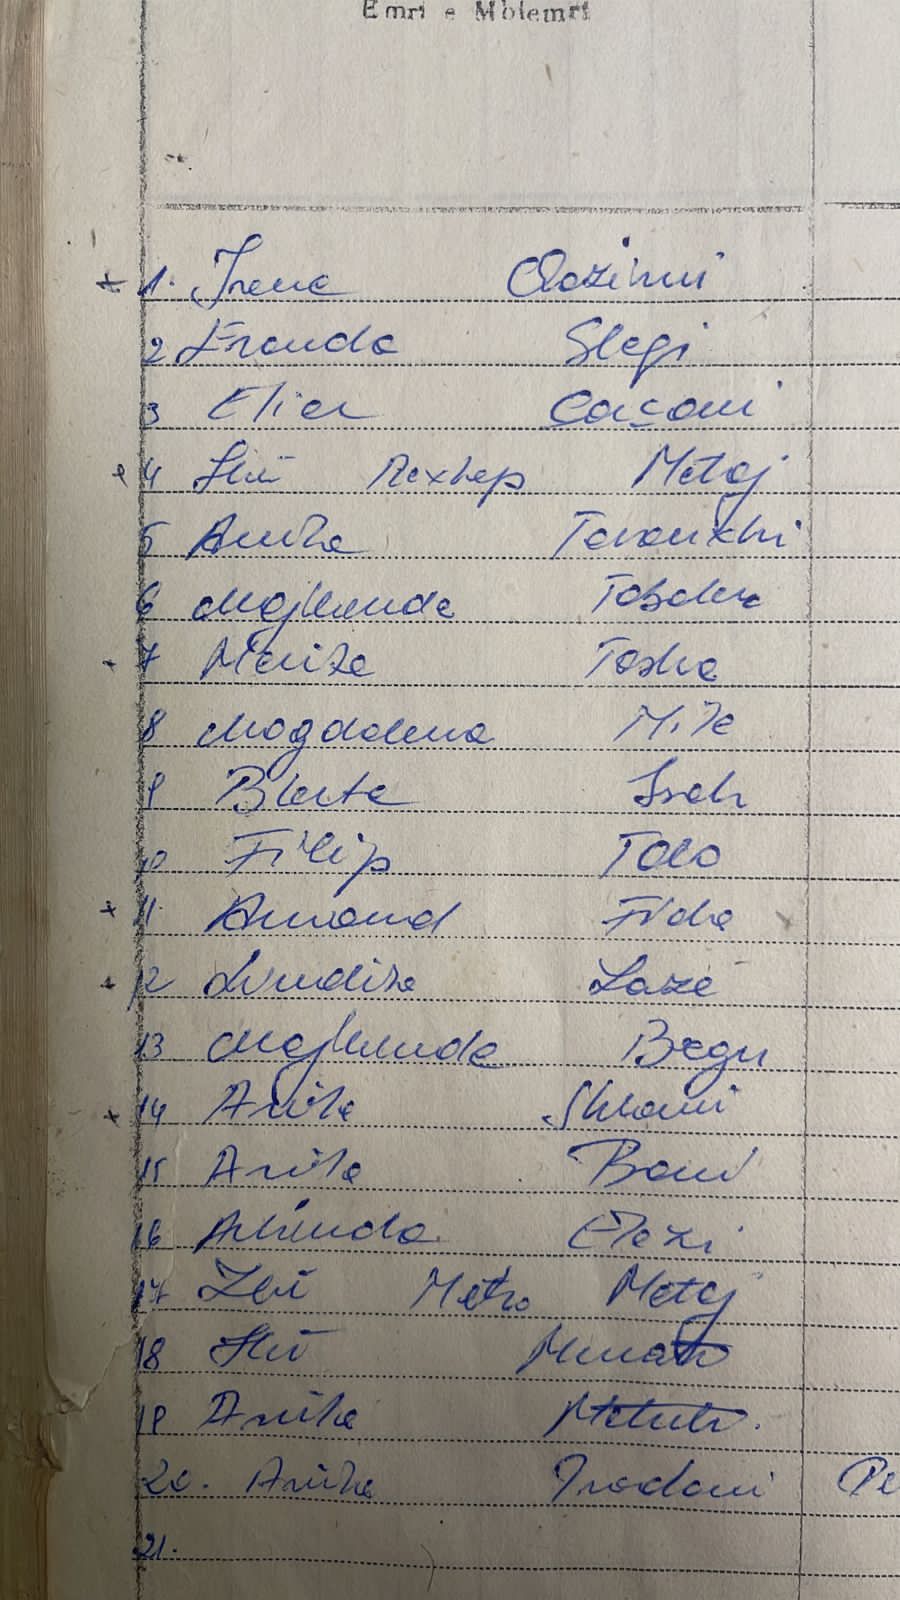 Emri e Mbiemri
1. Irena Qazimi
2 Eranda Slegi
3 Elier Caçani
4 Ilir Rexhep Metaj
5 Anila Tavanxhi
6 Majlinda
7 Marita Tosha
8 Magdalena Mile
9 Blerta
10 Filip Tolo
11. Armand Fida
12 Lumdita Laze
13 Majlinda Begu
14 Anila
15 Anila Bani
16 Albinda Elezi
17 Ilir Metro Metaj
18 Ilir Murati
19 Anila
20. Anila Prodani Pe
21.